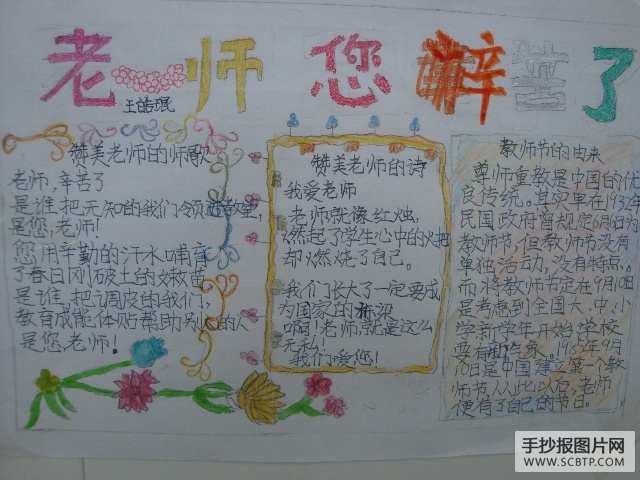 老师您辛苦了
王皓琨
赞美老师的师歌
老师,辛苦了
是谁把无知的我们领进教室,
是您,老师!
您用辛勤的汗水哺育
了春日刚破土的嫩苗
是谁,把调皮的我们,
教育成能体贴帮助别人的人
是您,老师!
赞美老师的诗
我爱老师
老师就像红烛,
燃起了学生心中的火把
却燃烧了自己。
我们长大了一定要成
为国家的栋梁
啊!老师,就是这么
无私,
我们爱您!
教师节的由来
尊师重教是中国的优
良传统。其实早在1932年
民国政府曾规定6月6日为
教师节,但教师节没有
单独活动,没有特点。
而将教师节定在9月10日
是考虑到全国大、中、小
学新学年开始,学校
要有新气象,1985年9月
10日是中国建立第一个教
师节从此以后,老师
便有了自己的节日。
手抄报图片网
WWW.SCBTP.COM